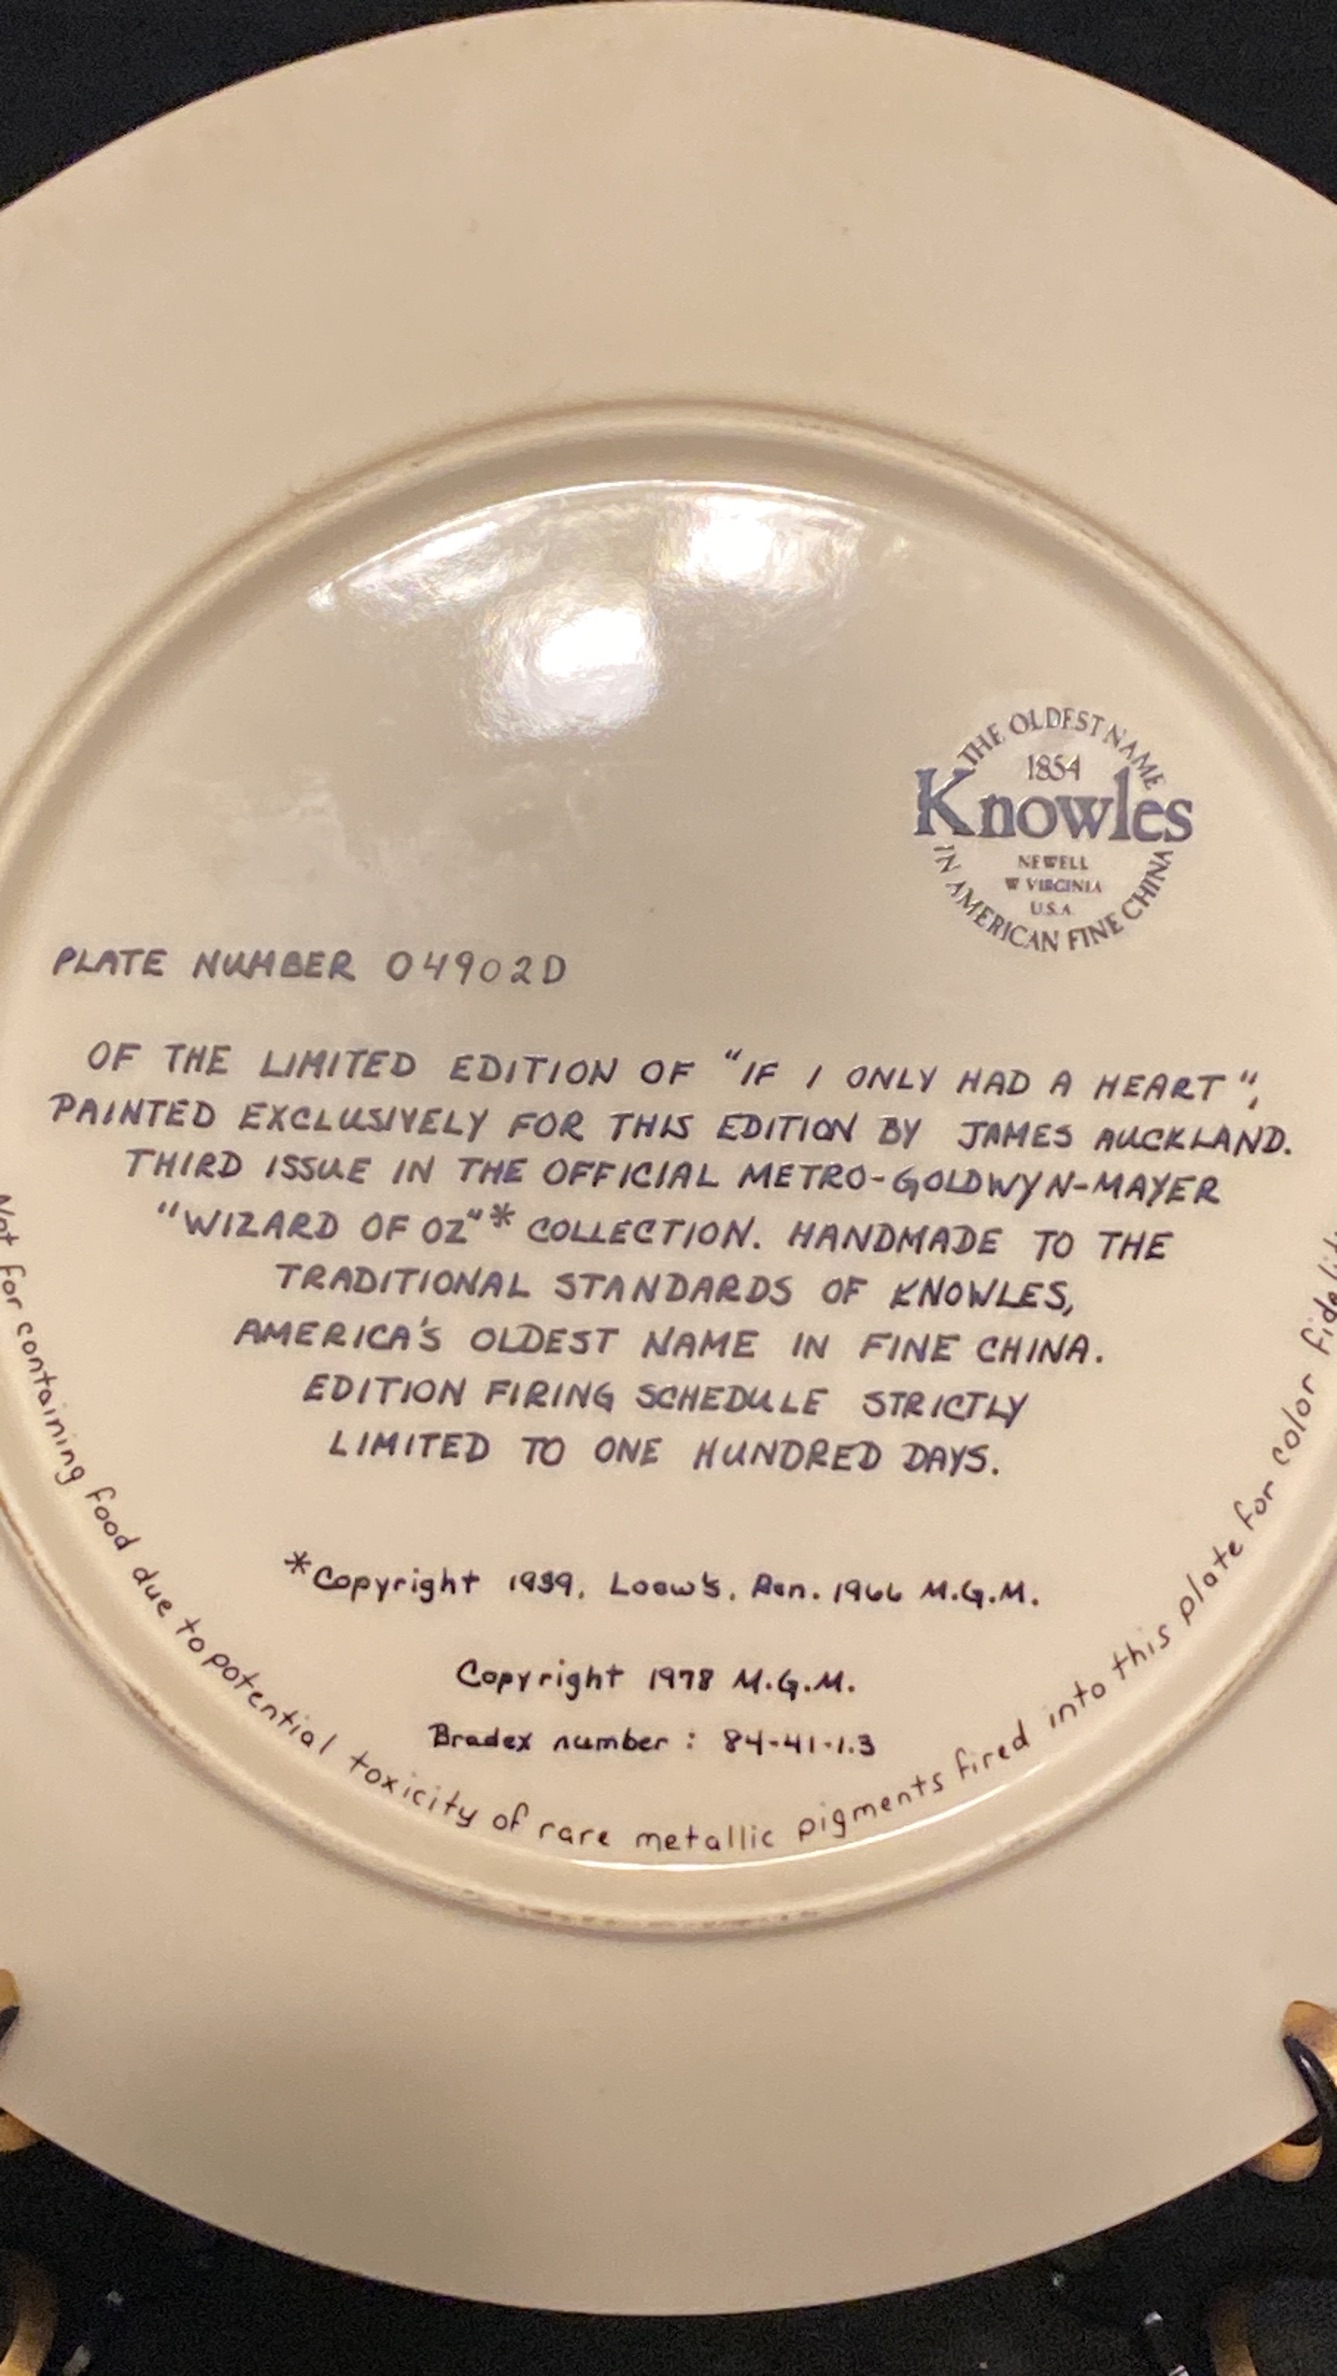 THE OLDEST NAME
1854
Knowles
NEWELL
W VIRGINIA
U.S.A.
IN AMERICAN FINE CHINA
PLATE NUMBER 04902D
OF THE LIMITED EDITION OF "IF I ONLY HAD A HEART",
PAINTED EXCLUSIVELY FOR THIS EDITION BY JAMES AUCKLAND.
THIRD ISSUE IN THE OFFICIAL METRO-GOLDWYN-MAYER
"WIZARD OF OZ"* COLLECTION. HANDMADE TO THE
TRADITIONAL STANDARDS OF KNOWLES,
AMERICA'S OLDEST NAME IN FINE CHINA.
EDITION FIRING SCHEDULE STRICTLY
LIMITED TO ONE HUNDRED DAYS.
*Copyright 1939, Loew's, Ren. 1966 M.G.M.
Copyright 1978 M.G.M.
Bradex number: 84-41-1.3
Not for containing food due to potential toxicity of rare metallic pigments fired into this plate for color